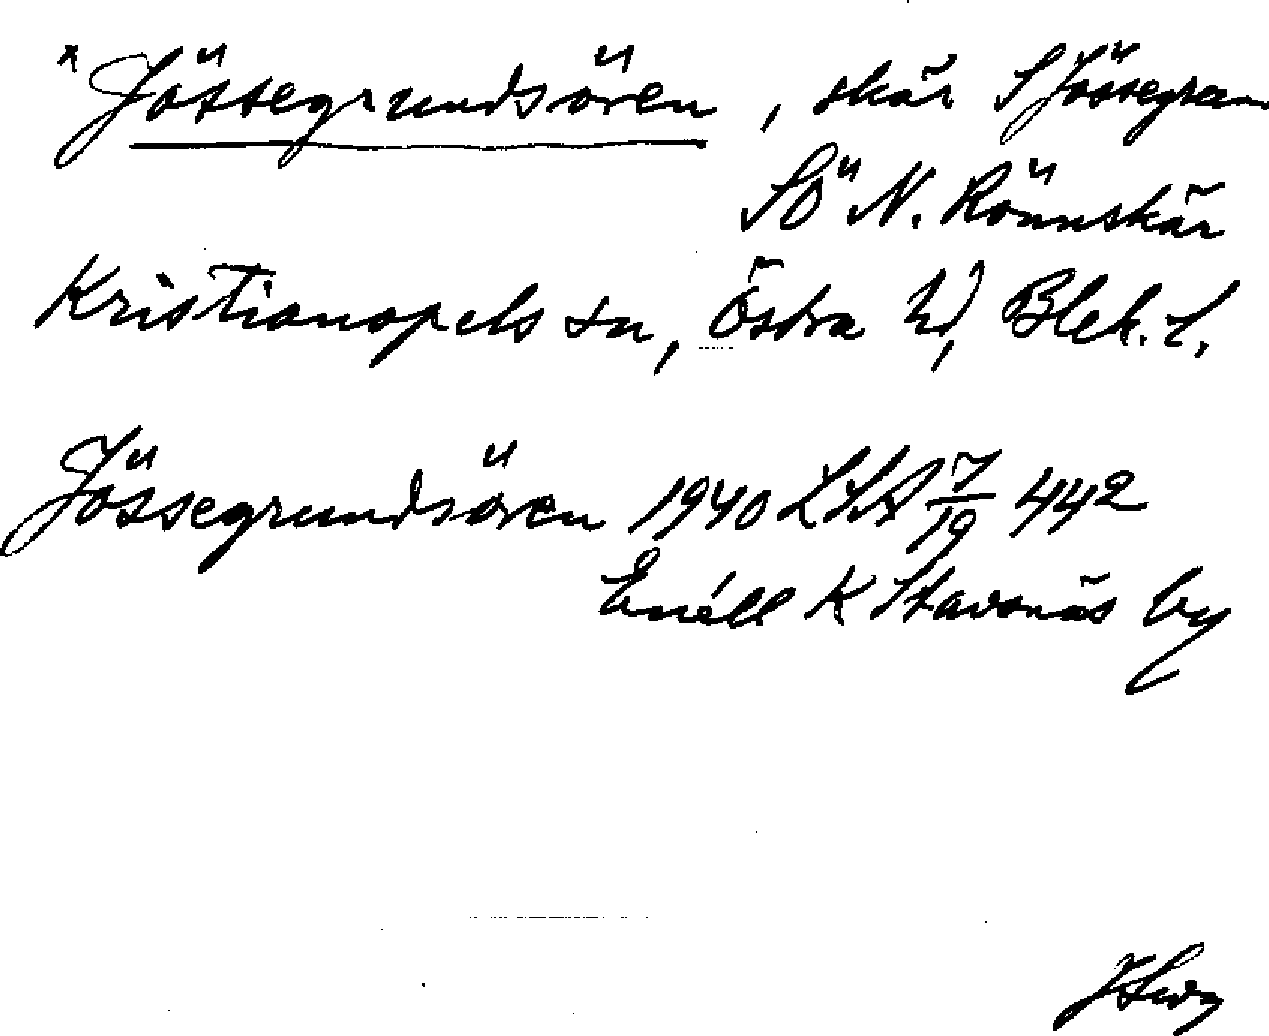 * Jössegrundsören, skär S Jössegrun
SÖ N. Rönnskär
Kristianopels sn, Östra hd, Blek. l.
Jössegrundsören 1940 LSA 7/19 442
Enéll K Stavsnäs by